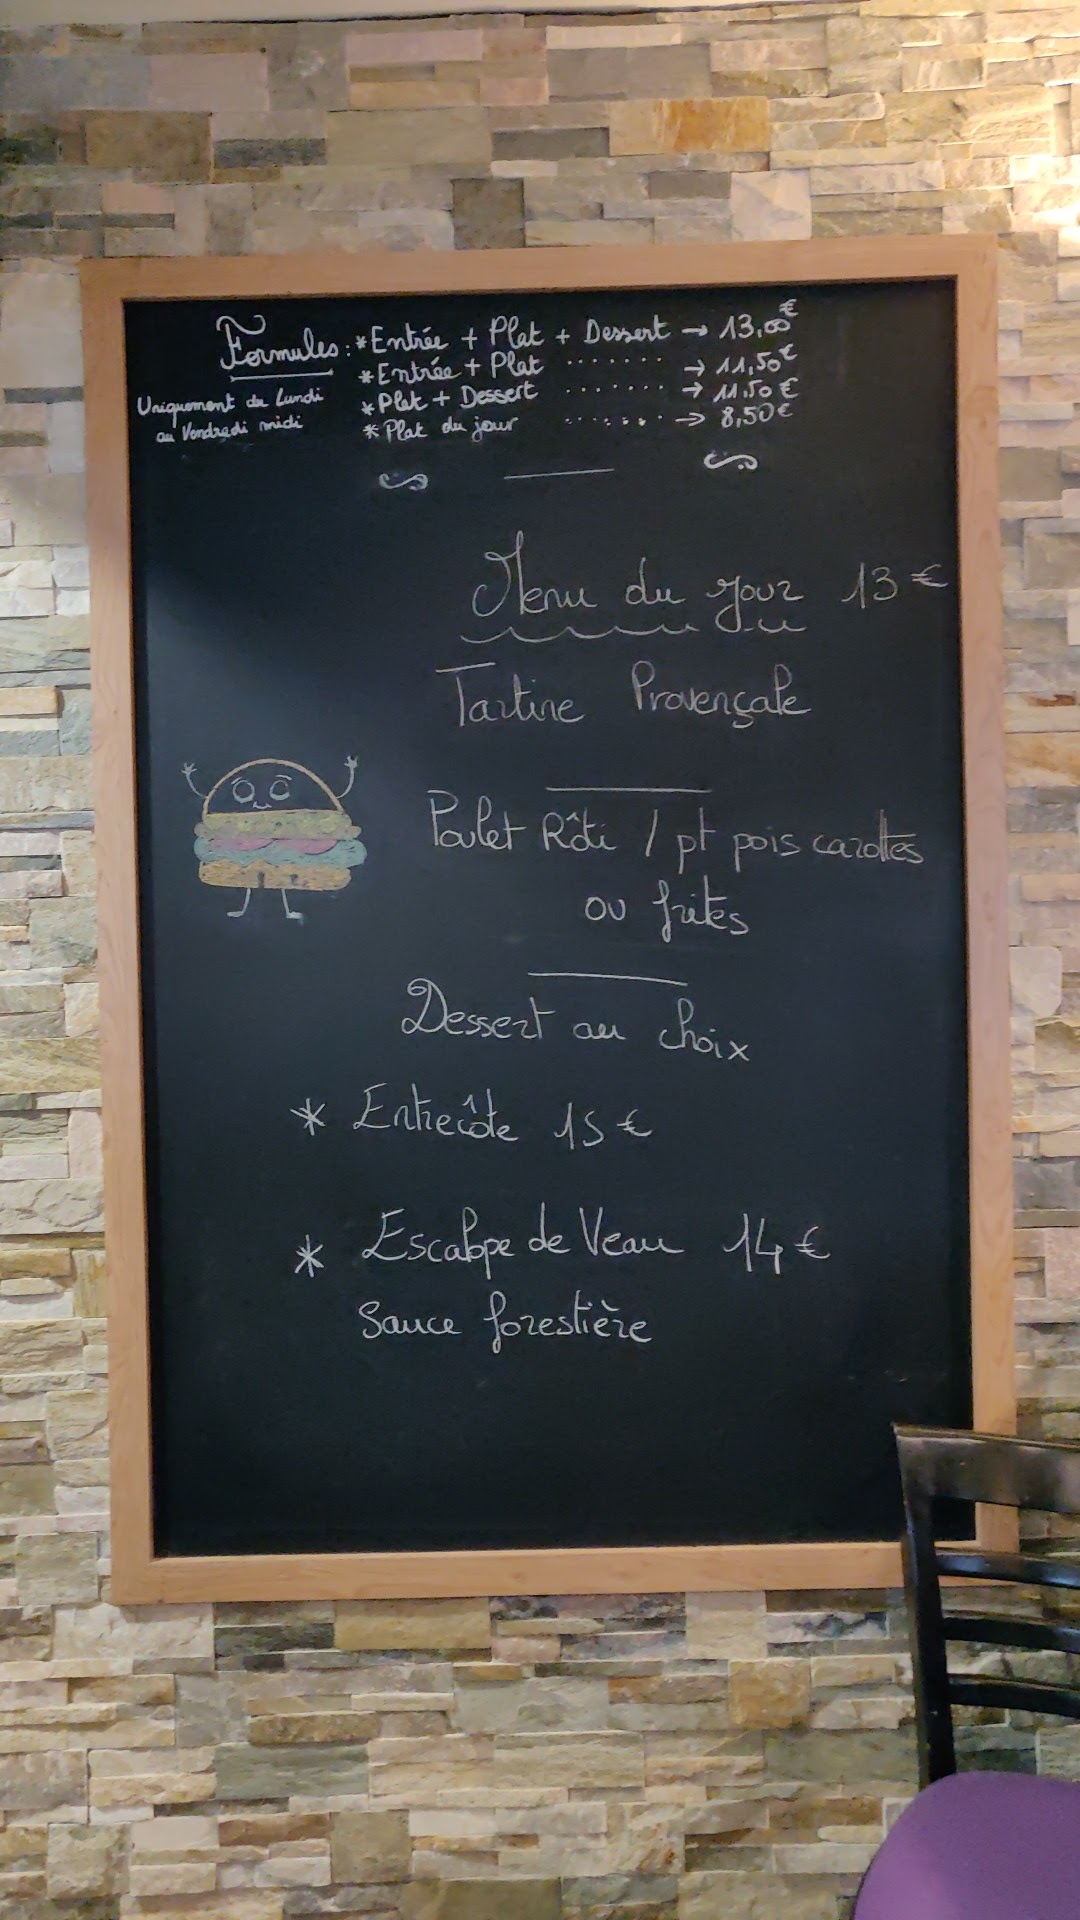 Formules : * Entrée + Plat + Dessert → 13,00€
* Entrée + Plat ....... → 11,50€
* Plat + Dessert ....... → 11.50 €
* Plat du jour ....... → 8,50€
Uniquement du Lundi
au Vendredi midi
Menu du jour 13 €
Tartine Provençale
Poulet Rôti / pt pois carottes
ou frites
Dessert au choix
* Entrecôte 15 €
* Escalope de Veau 14 €
Sauce forestière